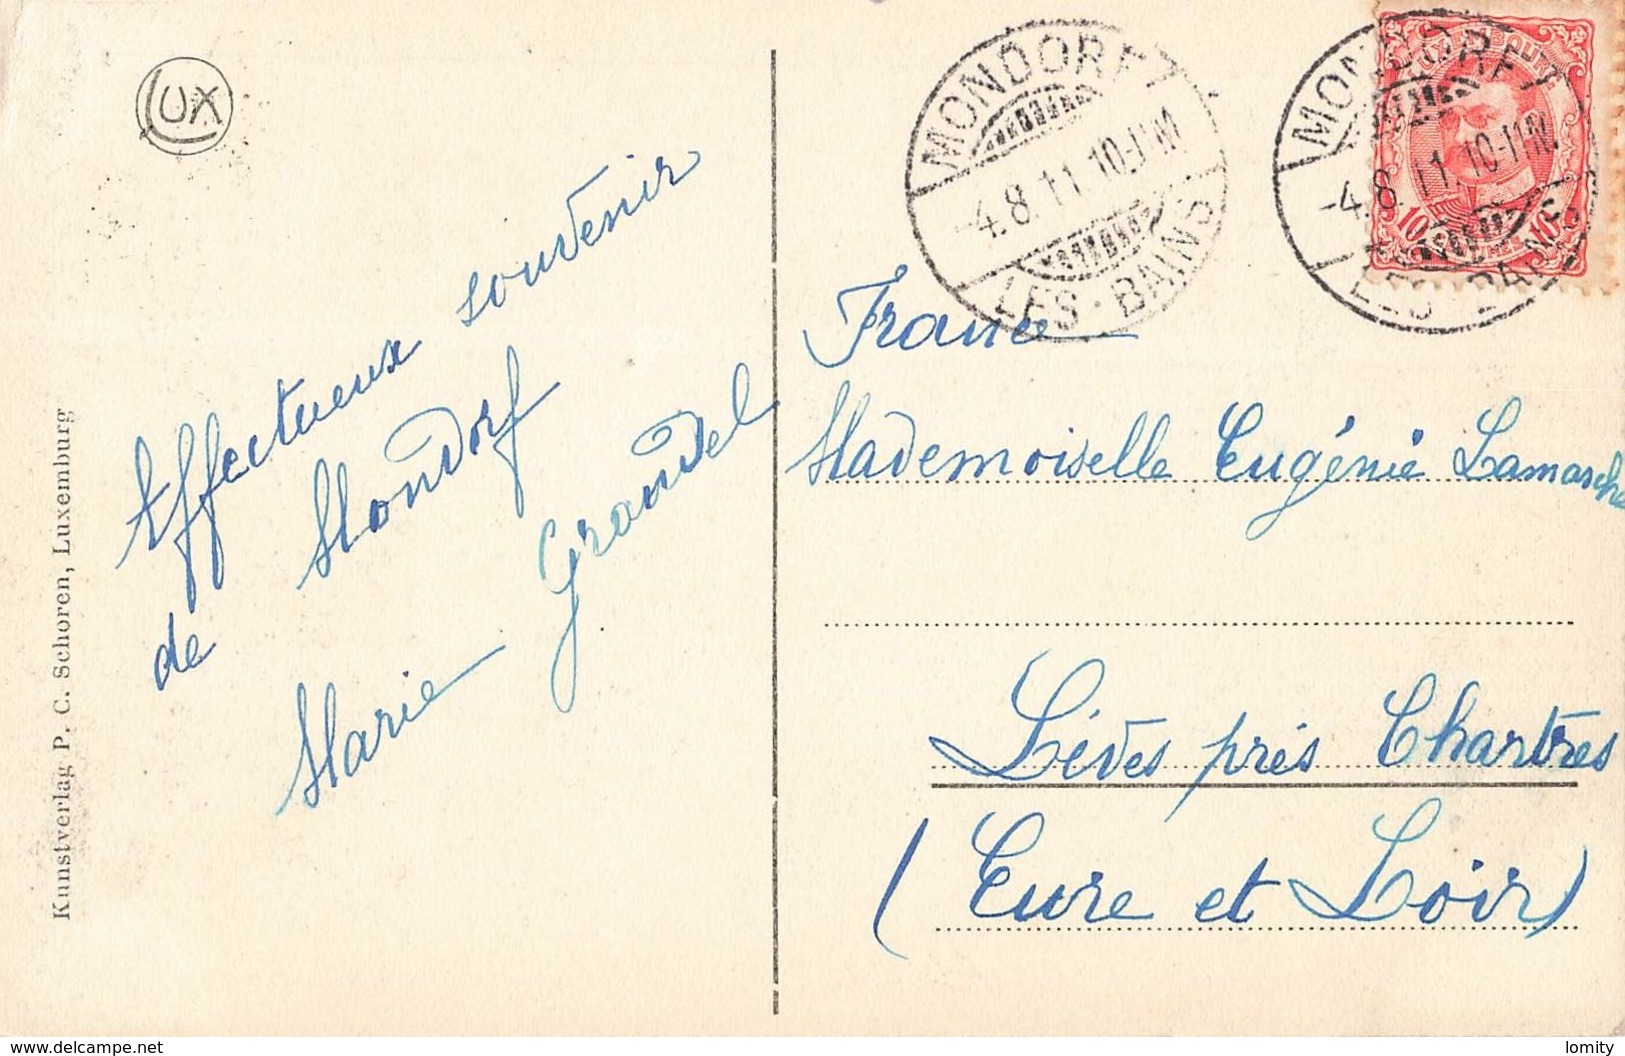 LUX
Effectueux souvenir
de Mondorf
Marie Grandel
Kunstverlag P. C. Schoren, Luxemburg
MONDORF
-4.8.11.10-11
LES-BAINS
MONDORF
-4.8.11.10-11
LES-BAINS
10
10
France
Mademoiselle Eugénie Lamarche
Lèves près Chartres
(Eure et Loir)
www.delcampe.net
lomity